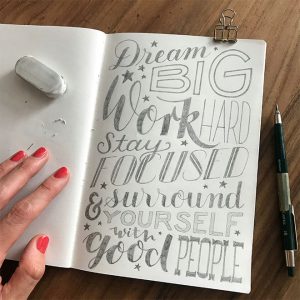 Dream
BIG
Work HARD
Stay
FOCUSED
& surround
YOURSELF
with
good PEOPLE